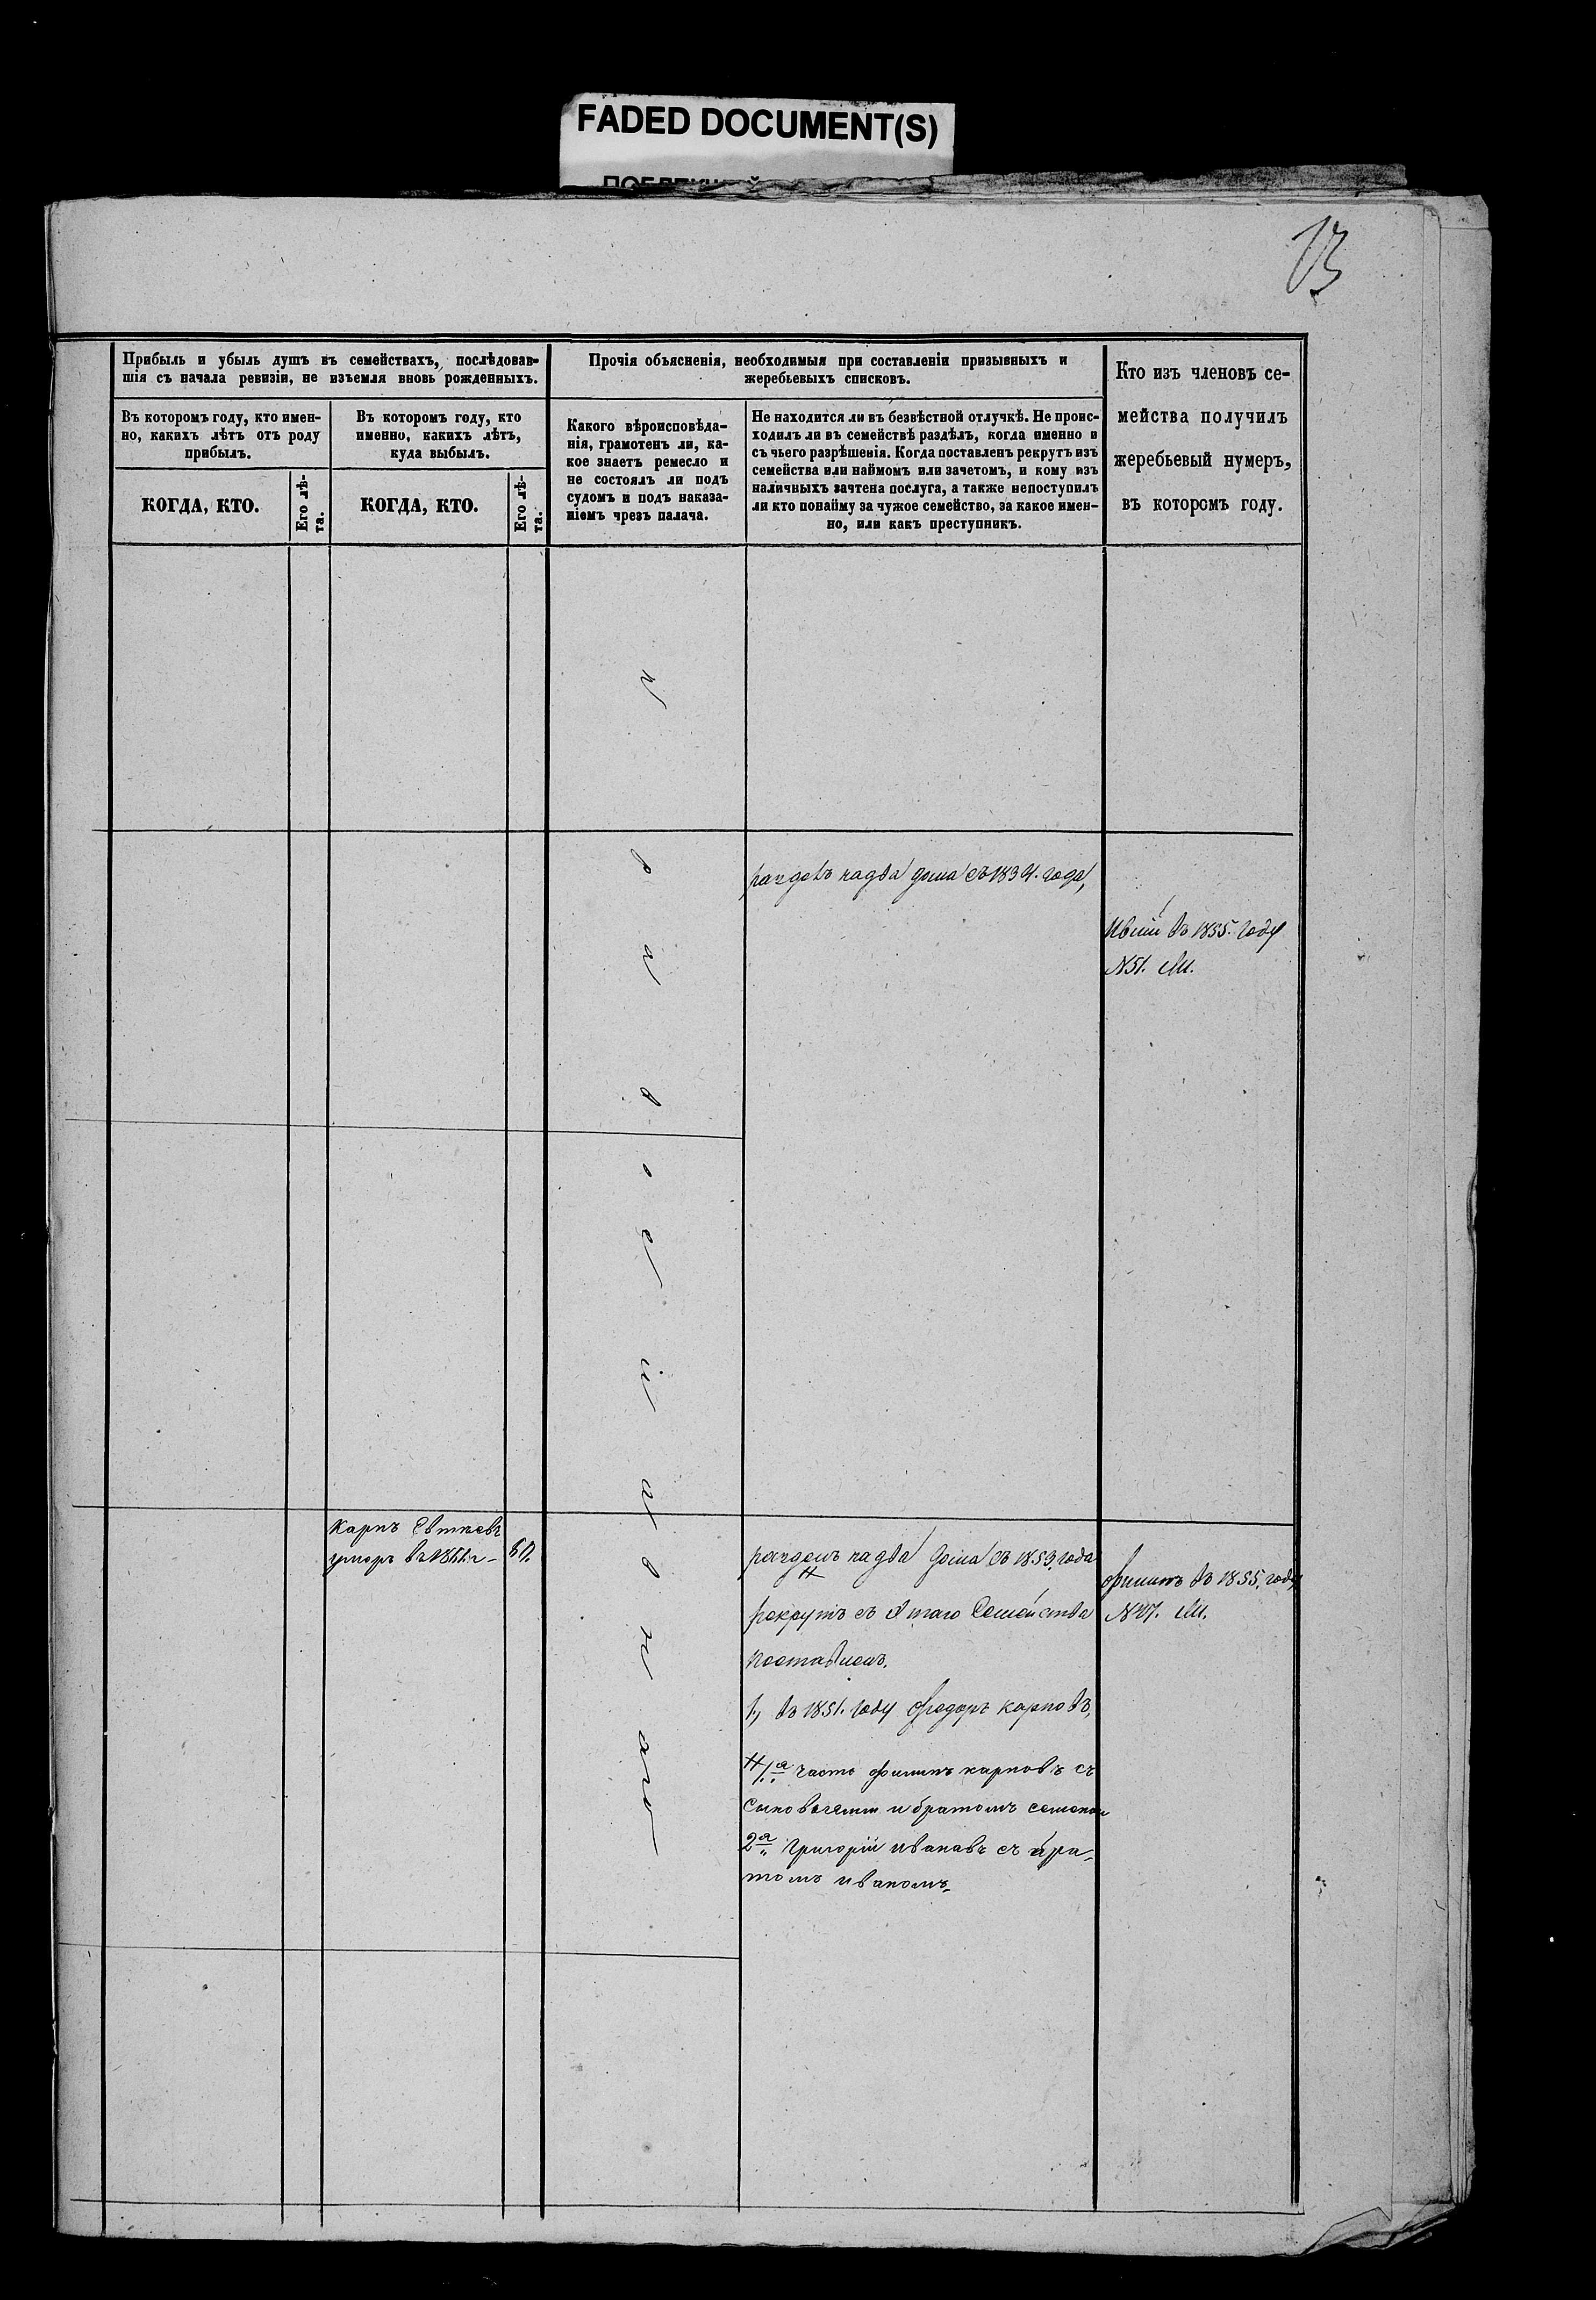 FADED DOCUMENT(S)
13
Прибыль и убыль душъ въ семействахъ, послѣдовав-
шія съ начала ревизіи, не изъемля вновь рожденныхъ.
Въ которомъ году, кто имен-
но, какихъ лѣтъ отъ роду
прибылъ.
КОГДА, КТО.
Его лѣ-
та.
Въ которомъ году, кто
именно, какихъ лѣтъ,
куда выбылъ.
КОГДА, КТО.
Его лѣ-
та.
Прочія объясненія, необходимыя при составленіи призывныхъ и
жеребьевыхъ списковъ.
Какого вѣроисповѣда-
нія, грамотенъ ли, ка-
кое знаетъ ремесло и
не состоялъ ли подъ
судомъ и подъ наказа-
ніемъ чрезъ палача.
Не находится ли въ безвѣстной отлучкѣ. Не проис-
ходилъ ли въ семействѣ раздѣлъ, когда именно и
съ чьего разрѣшенія. Когда поставленъ рекрутъ изъ
семейства или наймомъ или зачетомъ, и кому изъ
наличныхъ зачтена послуга, а также непоступилъ
ли кто понайму за чужое семейство, за какое имен-
но, или какъ преступникъ.
Кто изъ членовъ се-
мейства получилъ
жеребьевый нумеръ,
въ которомъ году.
надва дома съ 1839. года,
въ 1855. году
N51.
Карпъ
умеръ въ
надва дома съ 1853. года
рекрутъ съ Этаго Семейства
поставленъ.
1, въ 1851. году Фeдоръ карповъ,
1.я часть филипъ карповъ съ
Сыновьями и братомъ
2я Григорій ивановъ съ бра-
томъ иваномъ
филипъ въ 1855. году